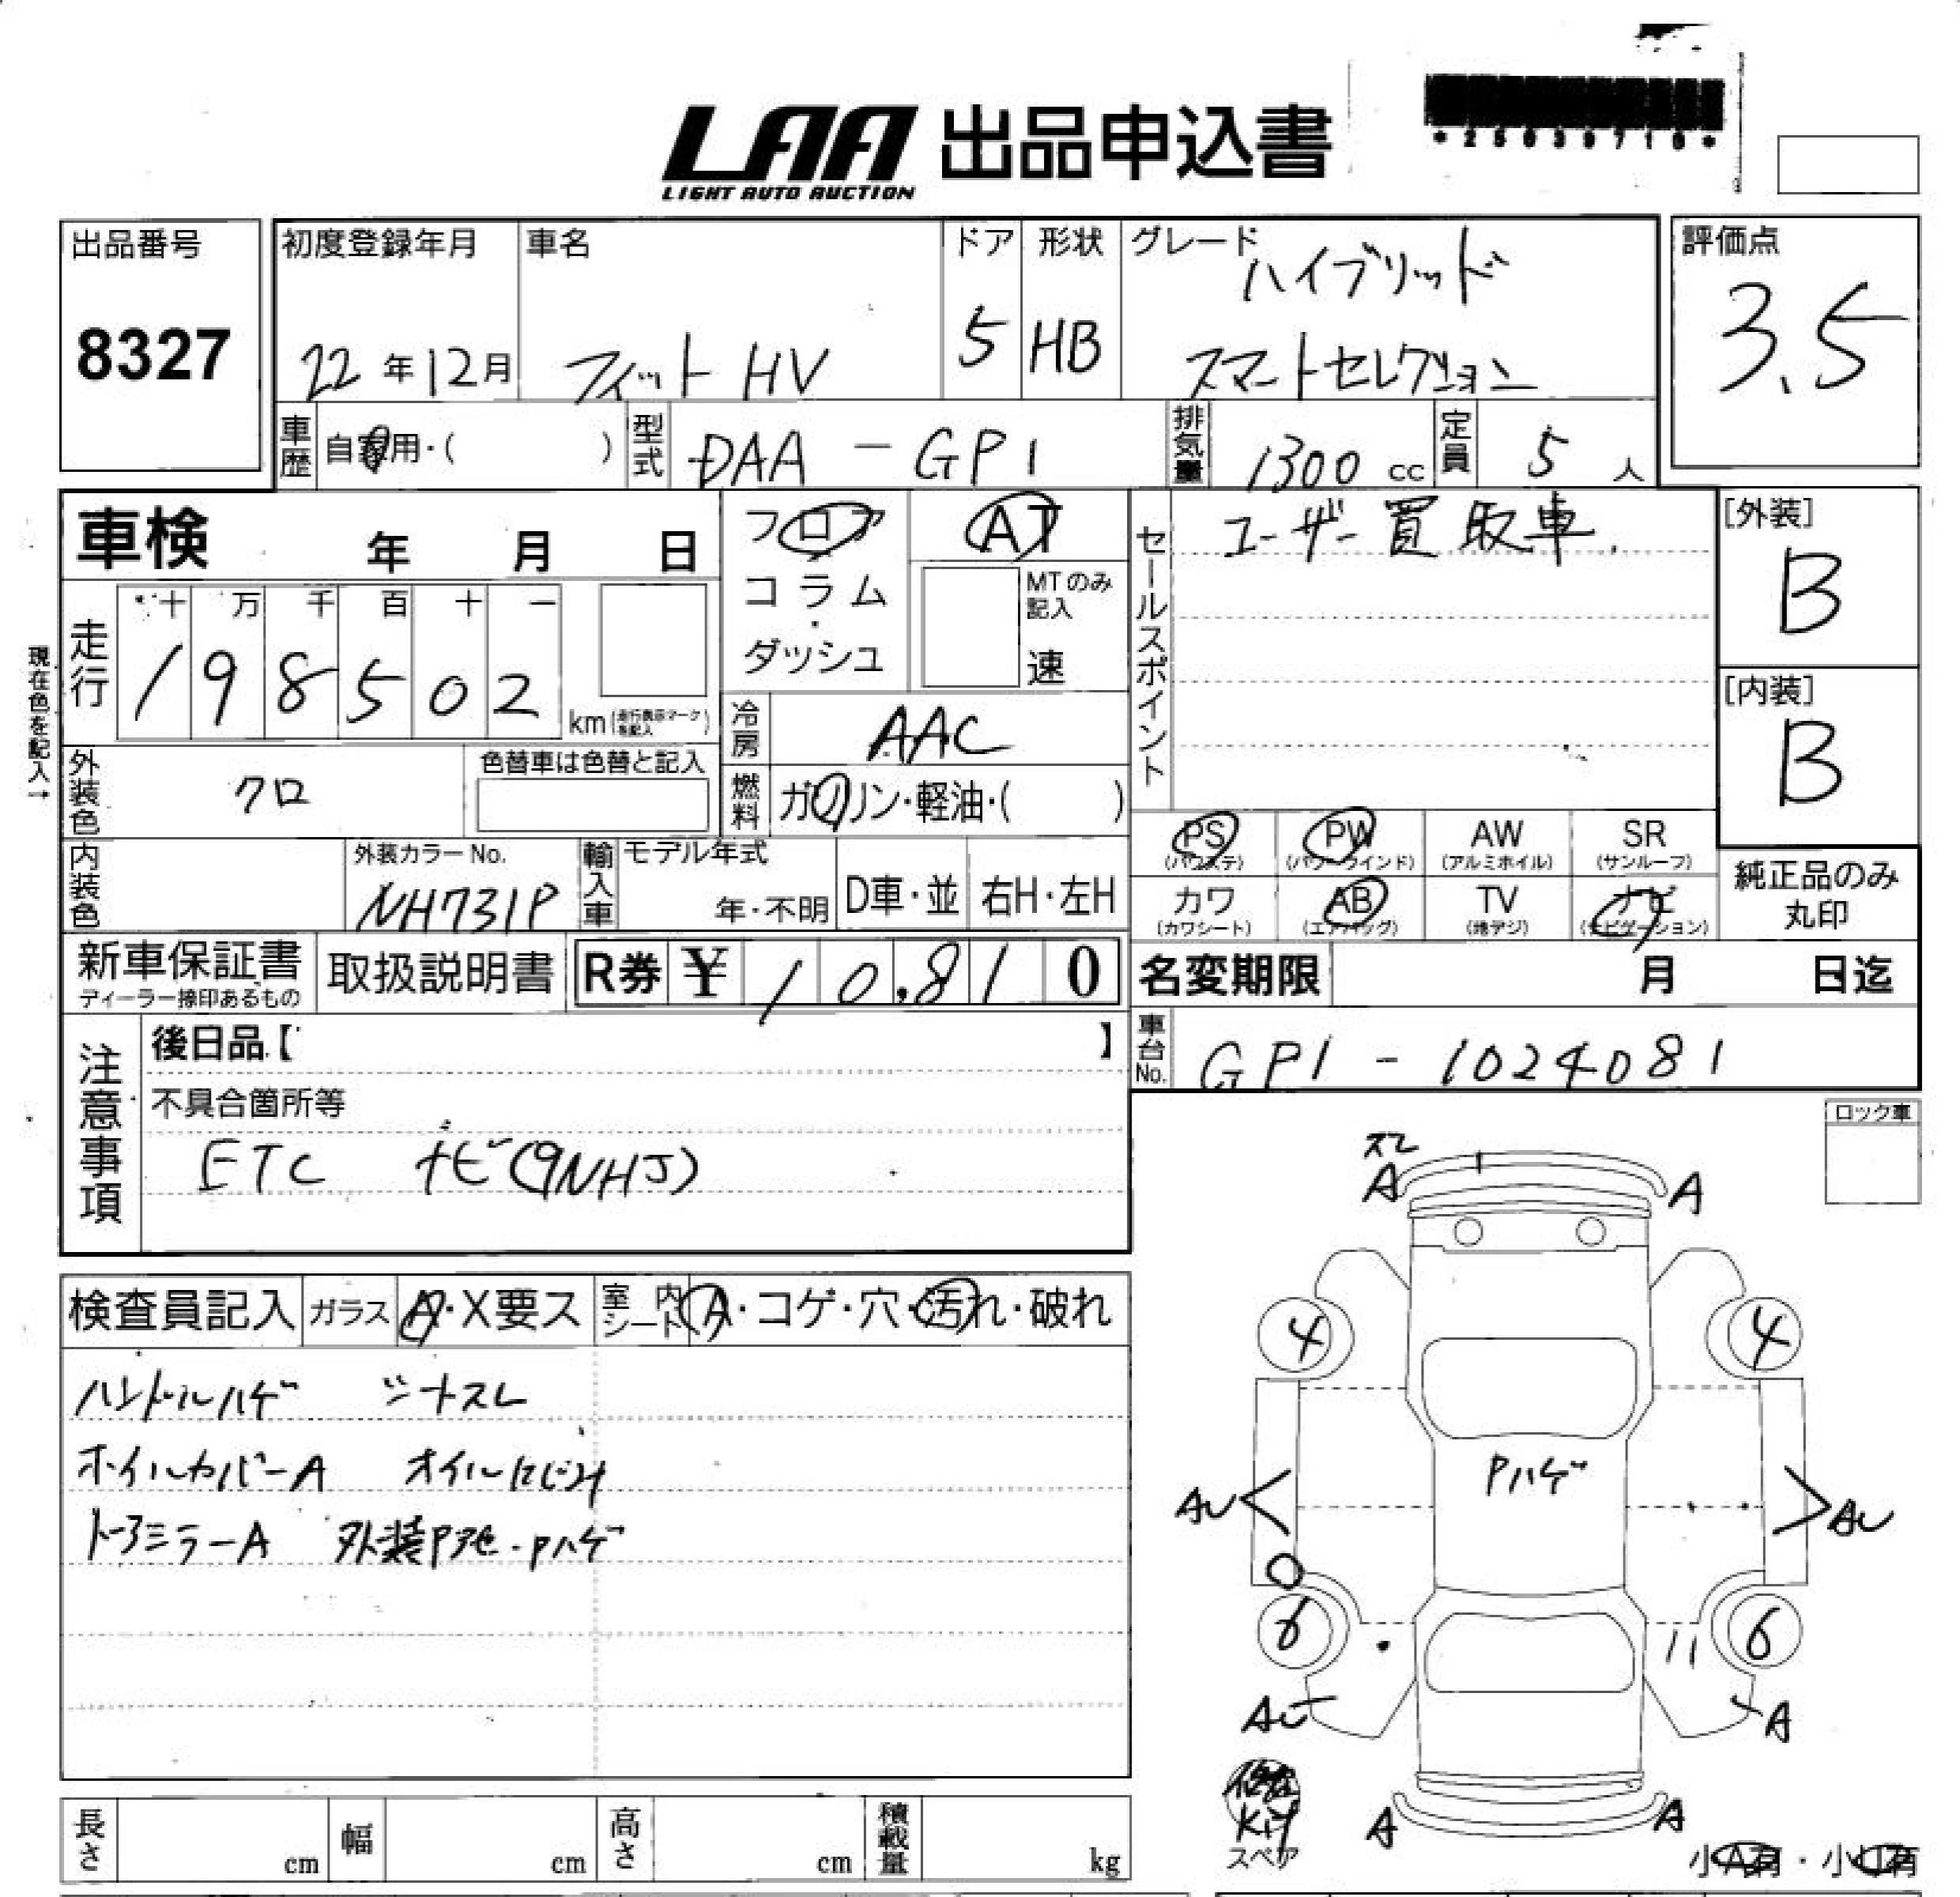 LAA 出品申込書
LIGHT AUTO AUCTION
*25039710*
出品番号
8327
初度登録年月
22年12月
車名
フィット HV
ドア
5
形状
HB
グレード
ハイブリッド
スマートセレクション
評価点
3.5
車歴 自家用・( )
型式 DAA-GP1
排気量 1300 cc
定員 5人
車検 年 月 日
フロア
コラム
ダッシュ
AT
MTのみ記入
速
セールスポイント
ユーザー買取車.
[外装]
B
[内装]
B
現在色を記入→
走行
十 万 千 百 十 一
1 9 8 5 0 2 km (走行表示マークを記入)
冷房 AAC
外装色 クロ
色替車は色替と記入
燃料 ガソリン・軽油・( )
PS (パワステ)
PW (パワーウインド)
AW (アルミホイル)
SR (サンルーフ)
カワ (カワシート)
AB (エアバッグ)
TV (地デジ)
ナビ (ナビゲーション)
純正品のみ
丸印
内装色
外装カラーNo.
NH731P
輸入車
モデル年式
年・不明
D車・並
右H・左H
新車保証書
ディーラー捺印あるもの
取扱説明書
R券 ¥ 10,810
名変期限 月 日迄
車台No. GP1-1024081
注意事項
後日品【 】
不具合箇所等
ETC ナビ(9NHJ)
ロック車
スレ
A
A
検査員記入
ガラス A・X要ス
室内シート A・コゲ・穴・汚れ・破れ
ハンドルハゲ シートスレ
ホイルカバーA オイルにじみ
ドアミラーA 外装P色・Pハゲ
4
4
Pハゲ
AU
AU
6
6
AU
A
Kit
スペア
A
A
小A有・小U有
長さ cm
幅 cm
高さ cm
積載量 kg